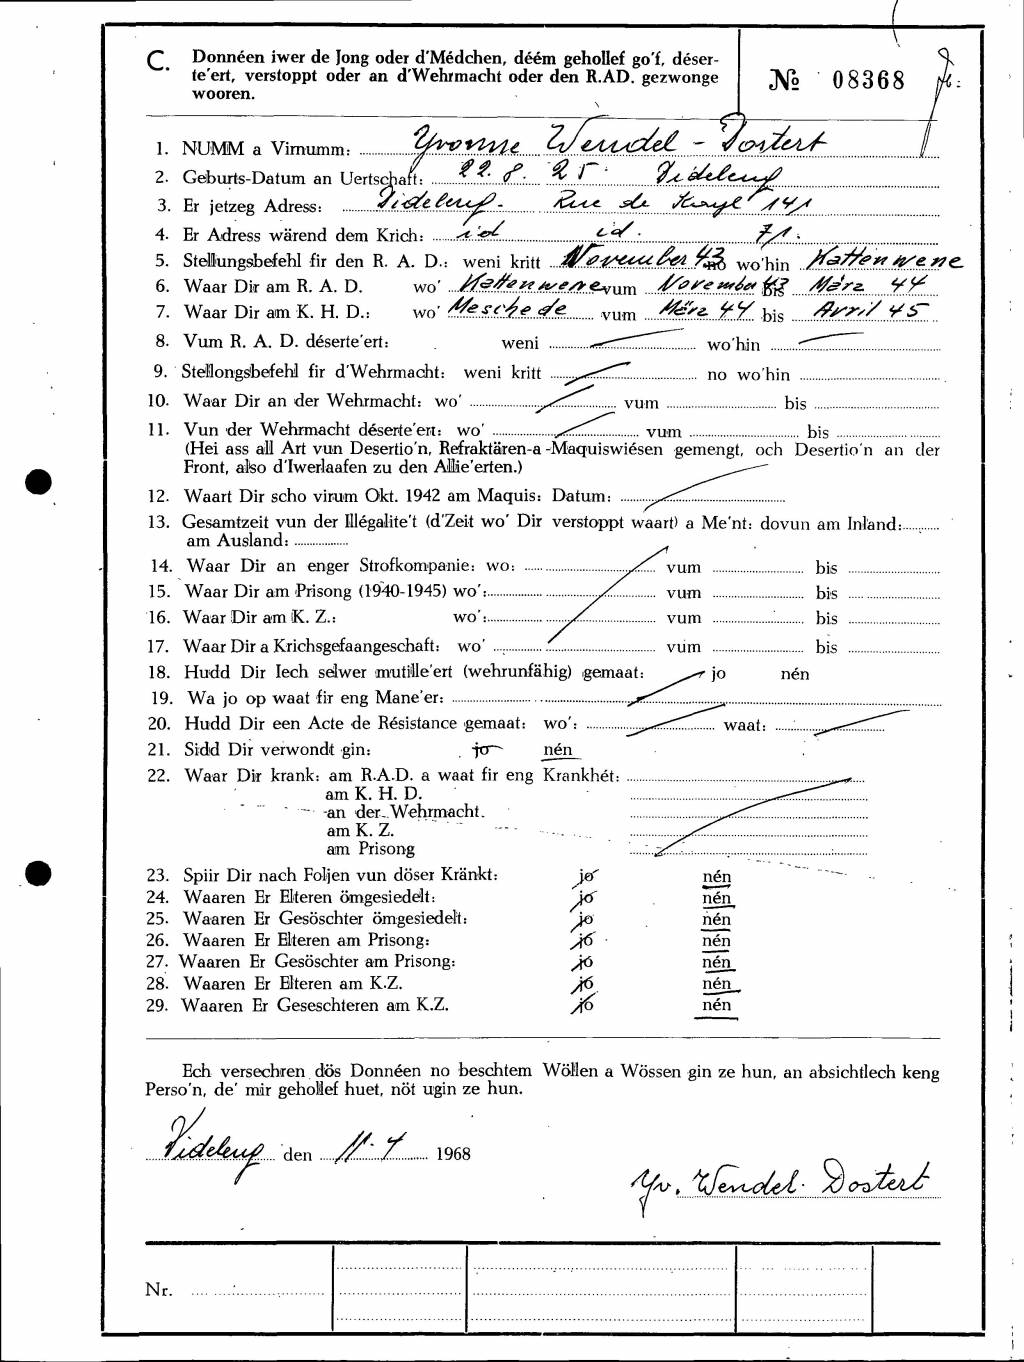 C. Donnéen iwer de Jong oder d'Médchen, déém gehollef go'f, déser-
te'ert, verstoppt oder an d'Wehrmacht oder den R.AD. gezwonge
wooren.
№ 08368
1. NUMM a Virnumm: Yvonne Wendel - Dostert
2. Geburts-Datum an Uertschaft: 22. 8. 25. Dideleng
3. Er jetzeg Adress: Dideleng. Rue de Kayl 141
4. Er Adress wärend dem Krich: id id. 71.
5. Stellungsbefehl fir den R. A. D.: weni kritt November 43 no wo'hin Hattenwene
6. Waar Dir am R. A. D. wo' Hattenwene vum November 43 bis März 44
7. Waar Dir am K. H. D.: wo' Meschede vum März 44 bis Avril 45
8. Vum R. A. D. déserte'ert: weni wo'hin
9. Stellongsbefehl fir d'Wehrmacht: weni kritt no wo'hin
10. Waar Dir an der Wehrmacht: wo' vum bis
11. Vun der Wehrmacht déserte'ert: wo' vum bis
(Hei ass all Art vun Desertio'n, Refraktären-a -Maquiswiésen gemengt, och Desertio'n an der
Front, also d'Iwerlaafen zu den Allie'erten.)
12. Waart Dir scho virum Okt. 1942 am Maquis: Datum:
13. Gesamtzeit vun der Illégalite't (d'Zeit wo' Dir verstoppt waart) a Me'nt: dovun am Inland:
am Ausland:
14. Waar Dir an enger Strofkompanie: wo: vum bis
15. Waar Dir am Prisong (1940-1945) wo': vum bis
16. Waar Dir am K. Z.: wo': vum bis
17. Waar Dir a Krichsgefaangeschaft: wo' vum bis
18. Hudd Dir Iech selwer mutille'ert (wehrunfähig) gemaat: jo nén
19. Wa jo op waat fir eng Mane'er:
20. Hudd Dir een Acte de Résistance gemaat: wo': waat:
21. Sidd Dir verwondt gin: jo nén
22. Waar Dir krank: am R.A.D. a waat fir eng Krankhét:
am K. H. D.
an der Wehrmacht.
am K. Z.
am Prisong
23. Spiir Dir nach Foljen vun döser Kränkt: jo nén
24. Waaren Er Elteren ömgesiedelt: jo nén
25. Waaren Er Gesöschter ömgesiedelt: jo nén
26. Waaren Er Elteren am Prisong: jo nén
27. Waaren Er Gesöschter am Prisong: jo nén
28. Waaren Er Elteren am K.Z. jo nén
29. Waaren Er Geseschteren am K.Z. jo nén
Ech versechren dös Donnéen no beschtem Wöllen a Wössen gin ze hun, an absichtlech keng
Perso'n, de' mir gehollef huet, nöt ugin ze hun.
Dideleng den 11. 4 1968
Yv. Wendel. Dostert
Nr.